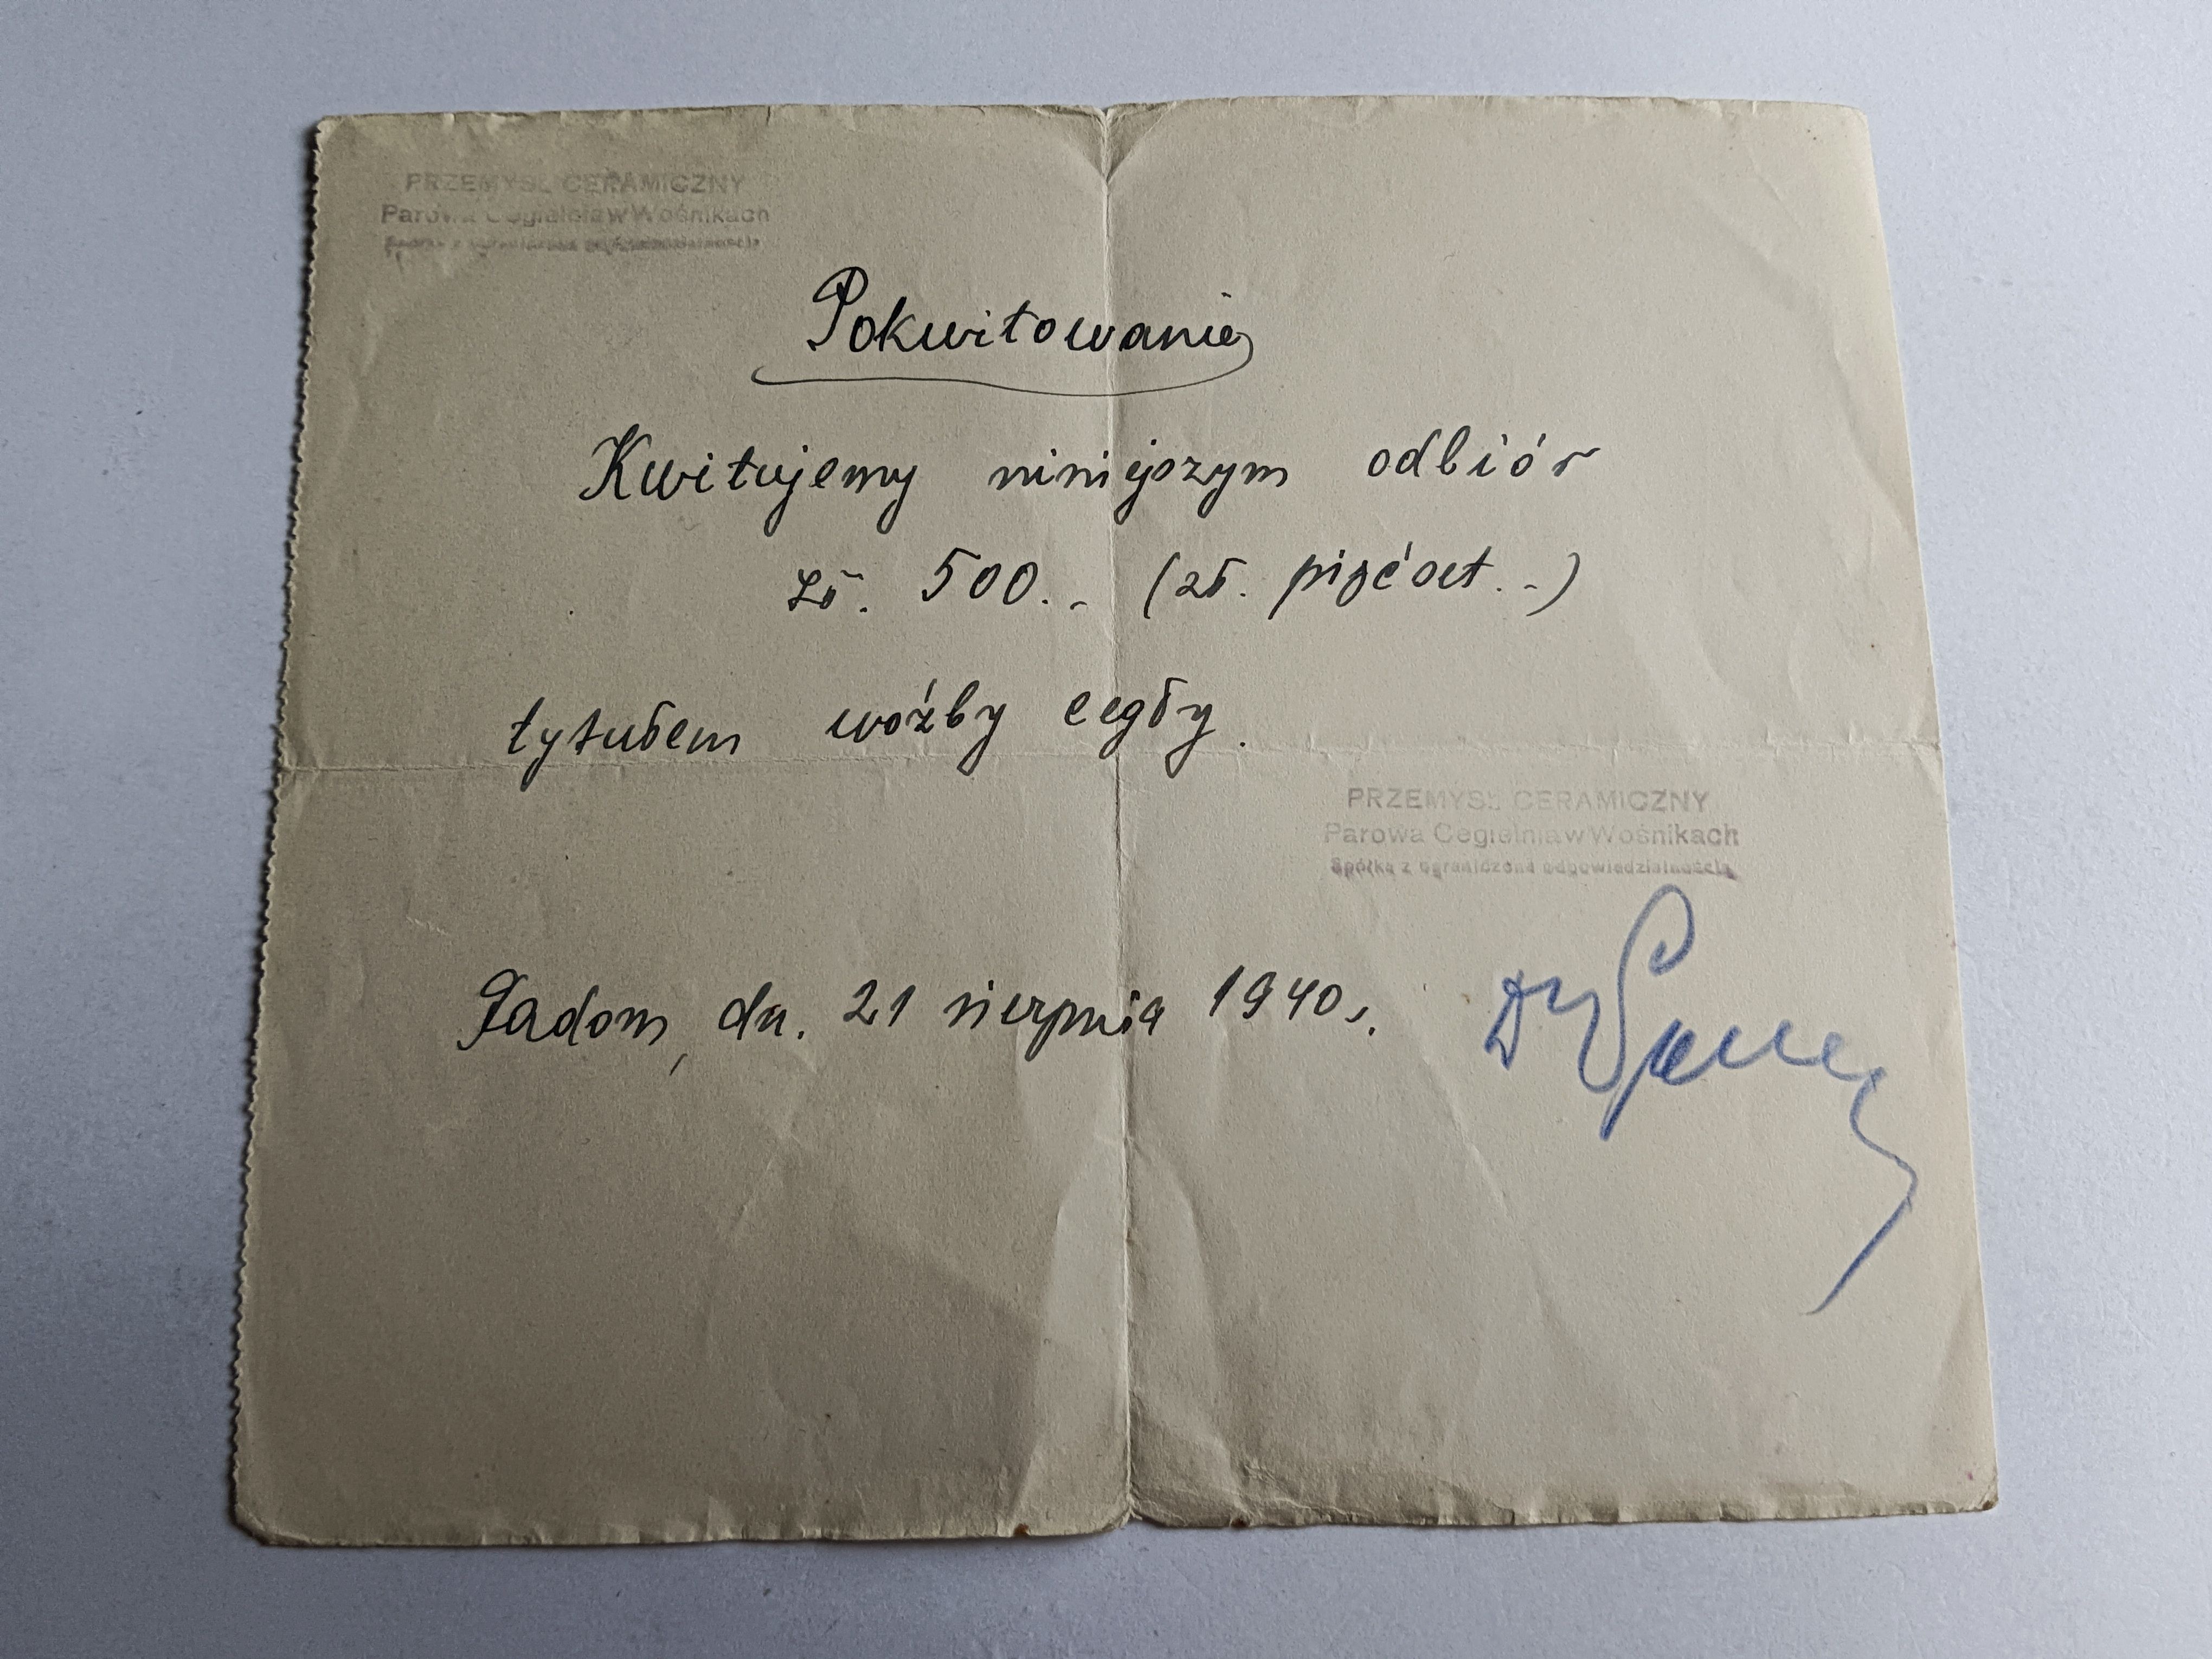 PRZEMYSŁ CERAMICZNY
Parowa Cegielnia w Wośnikach
Spółka z ograniczoną odpowiedzialnością
Pokwitowanie
Kwitujemy niniejszym odbiór
zł. 500.- (zł. pięćset.-)
tytułem woźby cegły.
PRZEMYSŁ CERAMICZNY
Parowa Cegielnia w Wośnikach
Spółka z ograniczoną odpowiedzialnością
Radom, dn. 21 sierpnia 1940 r.